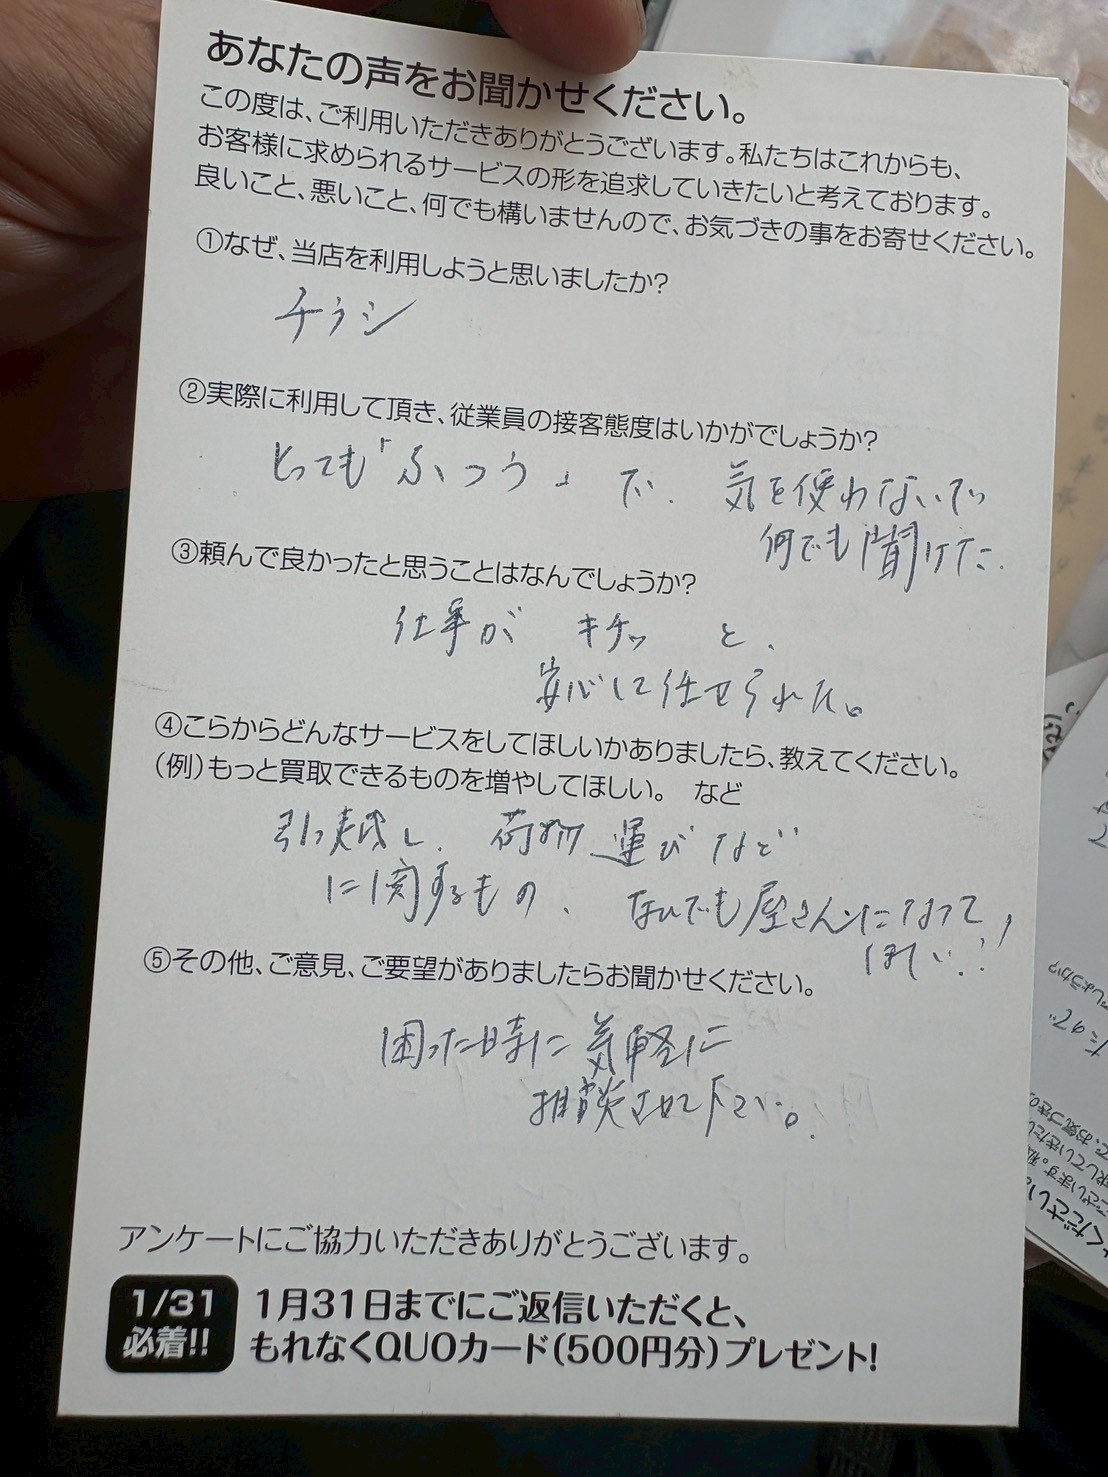 あなたの声をお聞かせください。
この度は、ご利用いただきありがとうございます。私たちはこれからも、
お客様に求められるサービスの形を追求していきたいと考えております。
良いこと、悪いこと、何でも構いませんので、お気づきの事をお寄せください。
①なぜ、当店を利用しようと思いましたか?
チラシ
②実際に利用して頂き、従業員の接客態度はいかがでしょうか?
とっても「ふつう」で、気を使わないで
何でも聞けた。
③頼んで良かったと思うことはなんでしょうか?
仕事がキチッと、
安心して任せられた。
④こらからどんなサービスをしてほしいかありましたら、教えてください。
(例)もっと買取できるものを増やしてほしい。 など
引っ越し、荷物運びなど
に関するもの、なんでも屋さんになって
ほしい!
⑤その他、ご意見、ご要望がありましたらお聞かせください。
困った時に気軽に
相談させて下さい。
アンケートにご協力いただきありがとうございます。
1/31
必着!!
1月31日までにご返信いただくと、
もれなくQUOカード(500円分)プレゼント!